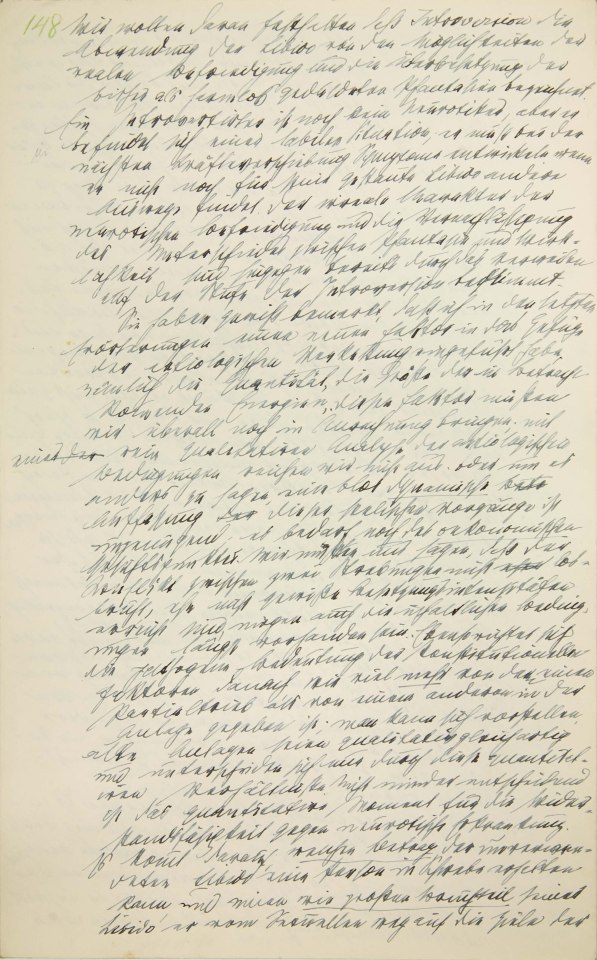 148 Wir wollen daran festhalten daß Introversion die
Abwendung der Libido von den Möglichkeiten der
realen Befriedigung und die Überbesetzung der
bisher als harmlos geduldeten Phantasien bezeichnet.
Ein Introvertirter ist noch kein Neurotiker, aber er
befindet sich einer labilen Situation, er muß bei der
nächsten Kräfteverschiebung Symptome entwickeln wenn
er nicht noch für seine gestaute Libido andere
Auswege findet. Der irreale Charakter der
neurotischen Befriedigung und die Vernachläßigung
des Unterschiedes zwischen Phantasie und Wirk-
lichkeit sind hingegen bereits durch das Verweilen
auf der Stufe der Introversion bestimmt.
Sie haben gewiß bemerkt, daß ich in den letzten
Erörterungen einen neuen Faktor in das Gefüge
der aetiologischen Verkettung eingeführt habe,
nämlich die Quantität, die Größe der in Betracht
kommenden Energien, diesen Faktor müssen
wir überall noch in Anrechnung bringen. Mit
einer rein qualitativen Analyse der aetiologischen
Bedingungen reichen wir nicht aus. Oder um es
anders zu sagen eine blos dynamische
Auffassung dieser seelischen Vorgänge ist
ungenügend, es bedarf noch des oekonomischen
Gesichtspunktes. Wir müssen uns sagen, daß der
Konflikt zwischen zwei Strebungen nicht los-
bricht, ehe nicht gewisse Besetzungsintensitäten
erreicht sind, mögen auch die inhaltlichen Beding-
ungen längst vorhanden sein. Ebenso richtet sich
die pathogene Bedeutung der konstitutionellen
Faktoren danach wie viel mehr von dem einen
Partialtrieb als von einem anderen in der
Anlage gegeben ist; man kann sich vorstellen,
alle Anlagen seien qualitativ gleichartig
und unterscheiden sich nur durch diese quantitat-
iven Verhältnisse. Nicht minder entscheidend
ist das quantitative Moment für die Wider-
standsfähigkeit gegen neurotische Erkrankung.
Es kommt darauf, welchen Betrag der unverwen-
deten Libido eine Person in Schwebe erhalten
kann und einen wie großen Bruchteil seiner
Libido er vom Sexuellen weg auf die Ziele der